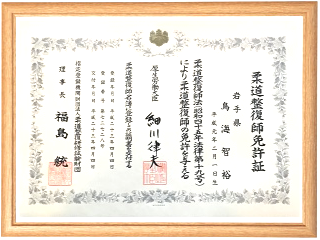 柔道整復師免許証
岩手県
鳥海智裕
平成元年二月一日生
柔道整復師法(昭和四十五年法律第十九号)
により柔道整復師の免許を与える
厚生労働大臣
細川律夫
柔道整復師名簿に登録しこの証明書を交付する
登録年月日 平成二十三年四月四日
交付年月日 平成二十三年四月四日
指定登録機関 財団法人柔道整復研修試験財団
理事長 福島統